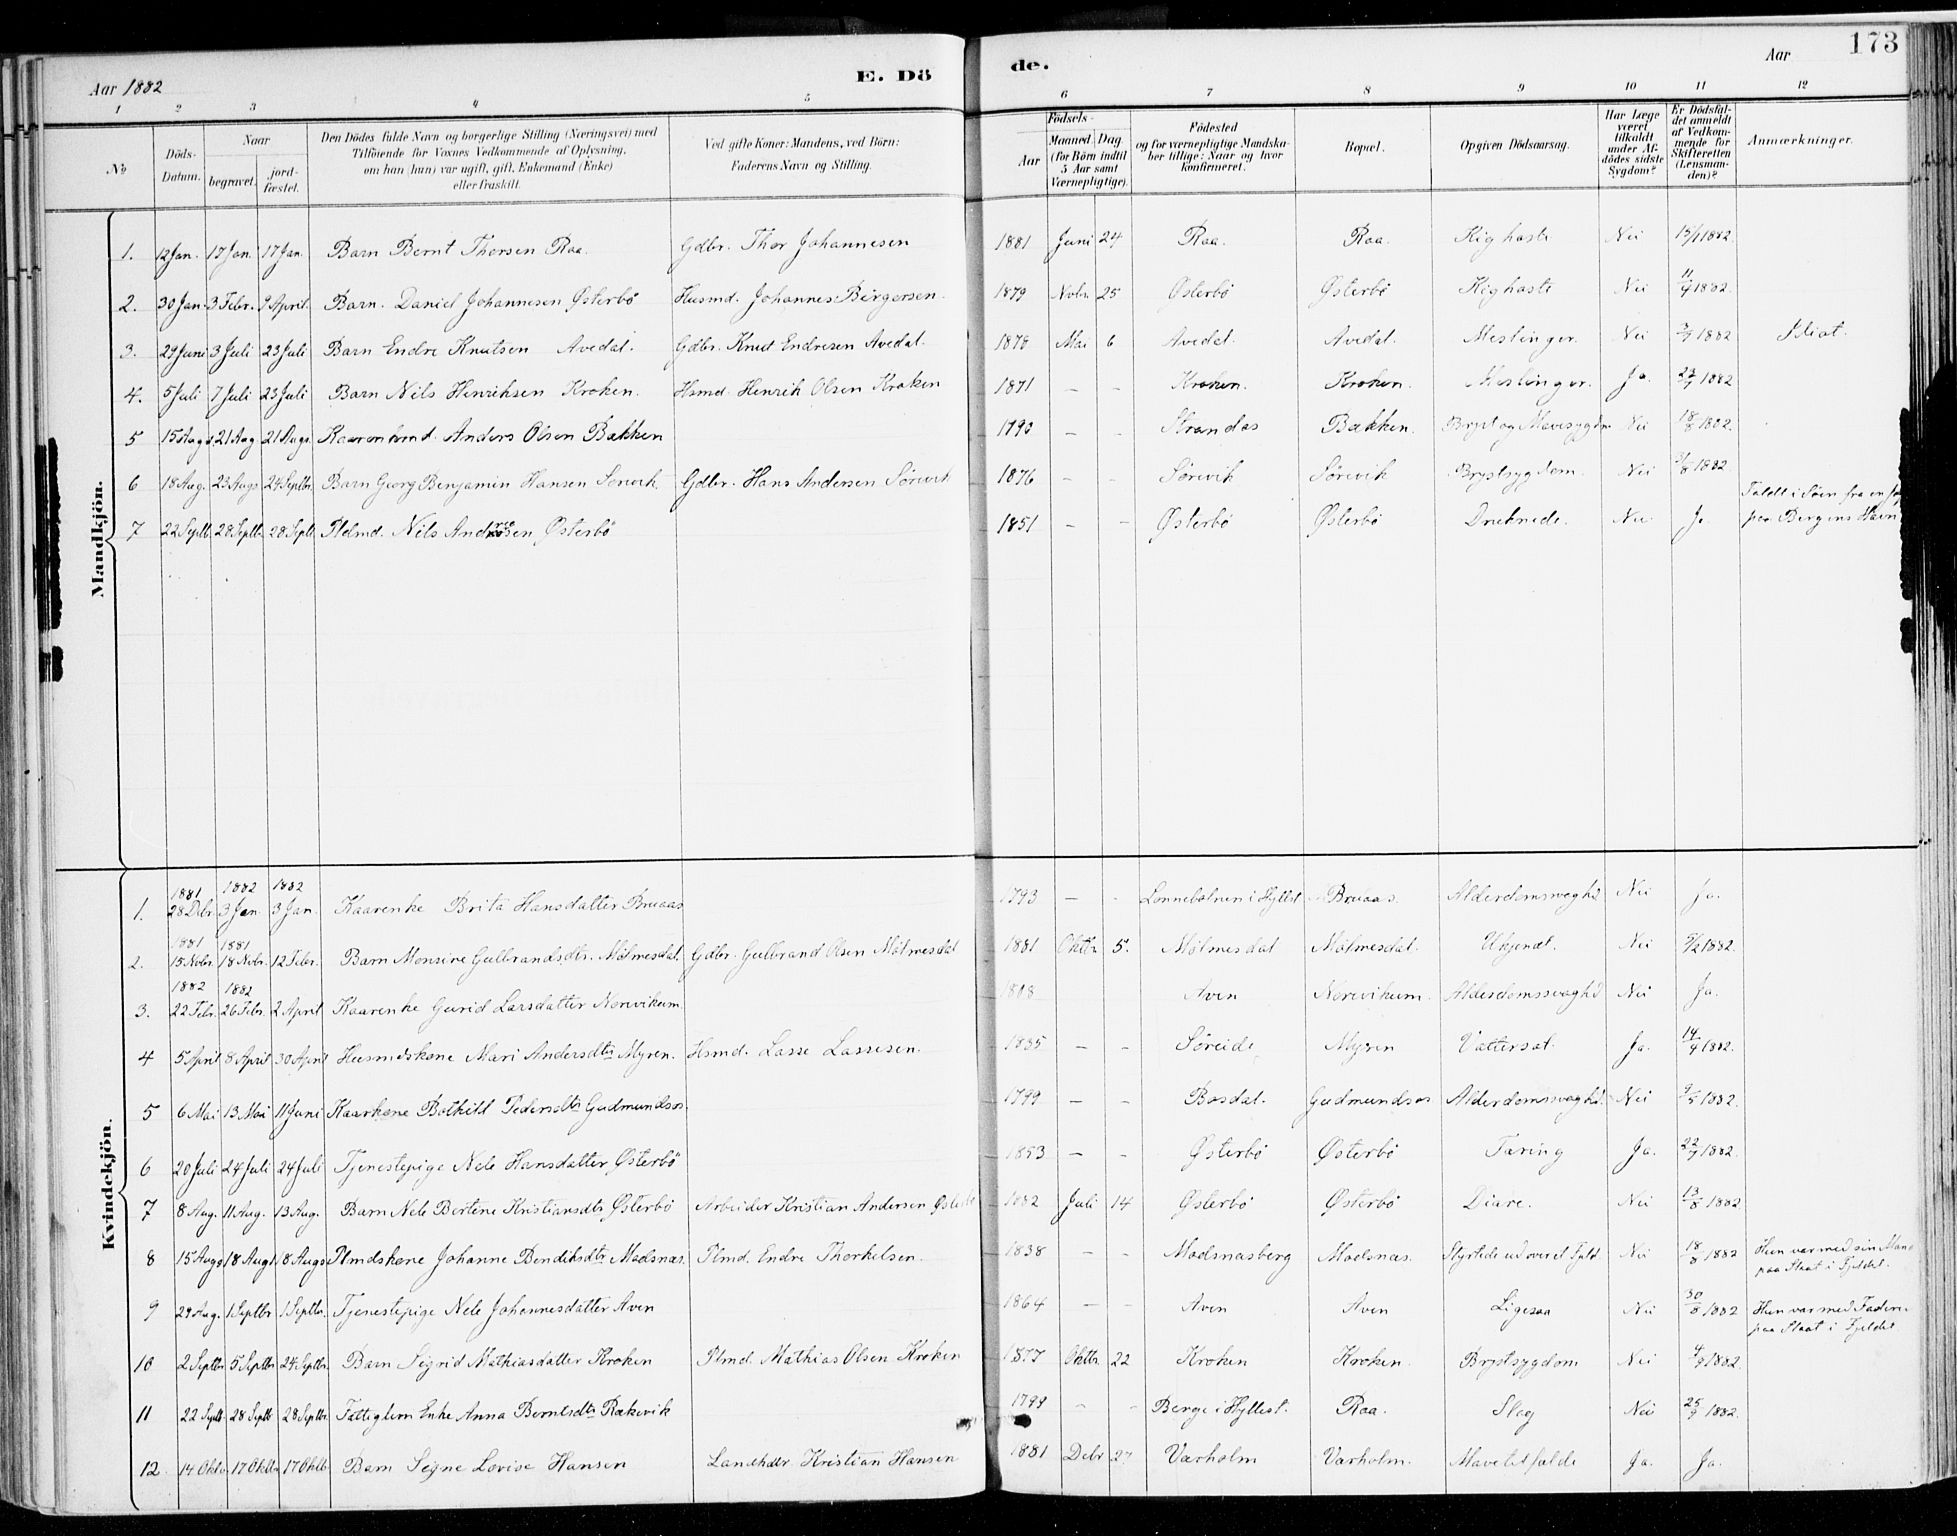 173
Aar 1882
E. Dö
de.
Aar
1 2 3 4 5 6 7 8 9 10 11 12
No
Döds-Datum.
Naar begravet. jordfæstet.
Den Dödes fulde Navn og borgerlige Stilling (Næringsvei) med Tilföiende for Voxnes Vedkommende af Oplysning, om han (hun) var ugift, gift, Enkemand (Enke) eller fraskilt.
Ved gifte Koner: Mandens, ved Börn: Faderens Navn og Stilling.
Födsels- Aar Maaned Dag (for Börn indtil 5 Aar samt Værnepligtige).
Födested og for værnepligtige Mandskaber tillige: Naar og hvor konfirmeret.
Bopæl.
Opgiven Dödsaarsag.
Har Læge været tilkaldt under Afdödes sidste Sygdom?
Er Dödsfaldet anmeldt af Vedkommende for Skifteretten (Lensmanden)?
Anmærkninger.
Mandkjön.
1. 12 Jan. 17 Jan. 17 Jan. Barn Bernt Thorsen Raa. Gdbr. Thor Johannesen 1881 Juni 24 Raa. Raa. Kighoste Nei 13/1 1882.
2. 30 Jan. 3 Febr. 9 April. Barn. Daniel Johannesen Østerbö Husmd. Johannes Birgersen. 1879 Nobr. 25 Østerbö Østerbö Kighoste Nei 1882.
3. 29 Juni 3 Juli 23 Juli Barn Endre Knutsen Avedal. Gdbr. Knud Endresen Avedal. 1878 Mai 6 Avedal. Avedal. Meslinger. Nei 3/7 1882 Idiot.
4. 5 Juli 7 Juli 23 Juli Barn Nils Henriksen Kroken. Hsmd. Henrik Olsen Kroken 1871 – – Kroken. Kroken. Meslinger. Ja. 23/7 1882
5 15 Augs 21 Aug 21 Augs. Kaarenkmd. Anders Olsen Bakken 1790 – – Strandos Bakken. Bryst og Mavesygdm Nei 18/8 1882.
6 18 Aug. 23 Augs 24 Septbr. Barn Georg Benjamin Hansen Sörevik Gdbr. Hans Andersen Sörevik 1876 – – Sörevik Sörevik Brystsygdom. Nei 1882.
7 22 Septb. 28 Septbr 28 Septb. Pldmd. Nils Andersen Østerbö 1851 – – Østerbö Østerbö Druknede. Nei Ja Faldt i Söen fra en
paa Bergens Havn
Kvindekjön.
1881 1882 1882
1. 28 Debr. 3 Jan. 3 Jan. Kaarenke Brita Hansdatter Bruaas 1793 – - Lonnebotnen i Hyllest Bruaas. Alderdomssvaghd Nei Ja.
1881 1881
2. 15 Nobr. 18 Nobr. 12 Febr. Barn Monsine Gulbrandsdtr. Mölmesdal. Gdbr. Gulbrand Olsen Mölmesdal 1881 Oktbr 5. Mölmesdal Mölmesdal. Ukjendt. Nei 5/2 1882.
1882 1882
3. 22 Febr. 26 Febr. 2 April Kaarenke Gurid Larsdatter Norevikum. 1808 Aven Norevikum. Alderdomssvaghd Nei Ja.
4 5 April 8 April 30 April Husmdskone Mari Andersdtr Myren. Hsmd. Lasse Lassesen. 1835 – – Söreide Myren Vattersot. Ja. 14/4 1882.
5 6 Mai 13 Mai 11 Juni Kaarkone Bothild Pedersdtr Gudmundsos. 1799 – – Bosdal. Gudmundsos Alderdomssvaghd. Nei 9/5 1882.
6 20 Juli 24 Juli 24 Juli Tjenestepige Nele Hansdatter Østerbö 1853 – – Østerbö Østerbö Tæring Ja. 22/7 1882.
7 8 Aug. 11 Aug. 13 Aug. Barn Nele Bertine Kristiansdtr Østerbö Arbeider Kristian Andersen Østerbö 1882 Juli 14 Østerbö Østerbö Diare. Nei 13/8 1882
8 15 Augs 18 Augs 18 Augs Plmdskone Johanne Bendiksdtr Madsnæs. Plmd. Endre Thorkelsen. 1838 – – Madsnæsberg Madsnæs. Styrtede ud over et Fjeld Nei 18/8 1882 Hun var med sin Mand
paa Slaat i Fjeldet.
9 29 Aug. 1 Septbr. 1 Septbr. Tjenestepige Nele Johannesdatter Aven 1864 – – Aven Aven Ligesaa Nei 30/8 1882 Hun var med Faderen
paa Slaat i Fjeldet.
10 2 Septbr. 5 Septbr 24 Septbr. Barn Sigrid Mathiasdatter Kroken Plmd. Mathias Olsen Kroken 1877 Oktbr. 22 Kroken Kroken. Brystsygdom Nei 4/9 1882.
11 22 Septb. 28 Septb 28 Septbr. Fattiglem Enke Anna Berntsdtr Rækevik 1798 – – Berge i Hyllest. Raa. Slag Nei 25/9 1882.
12. 14 Oktbr. 17 Oktbr 17 Oktb. Barn Signe Lovise Hansen Landhdlr Kristian Hansen 1881 Debr 27 Værholm Værholm. Mavetilfælde Ja. Ja.